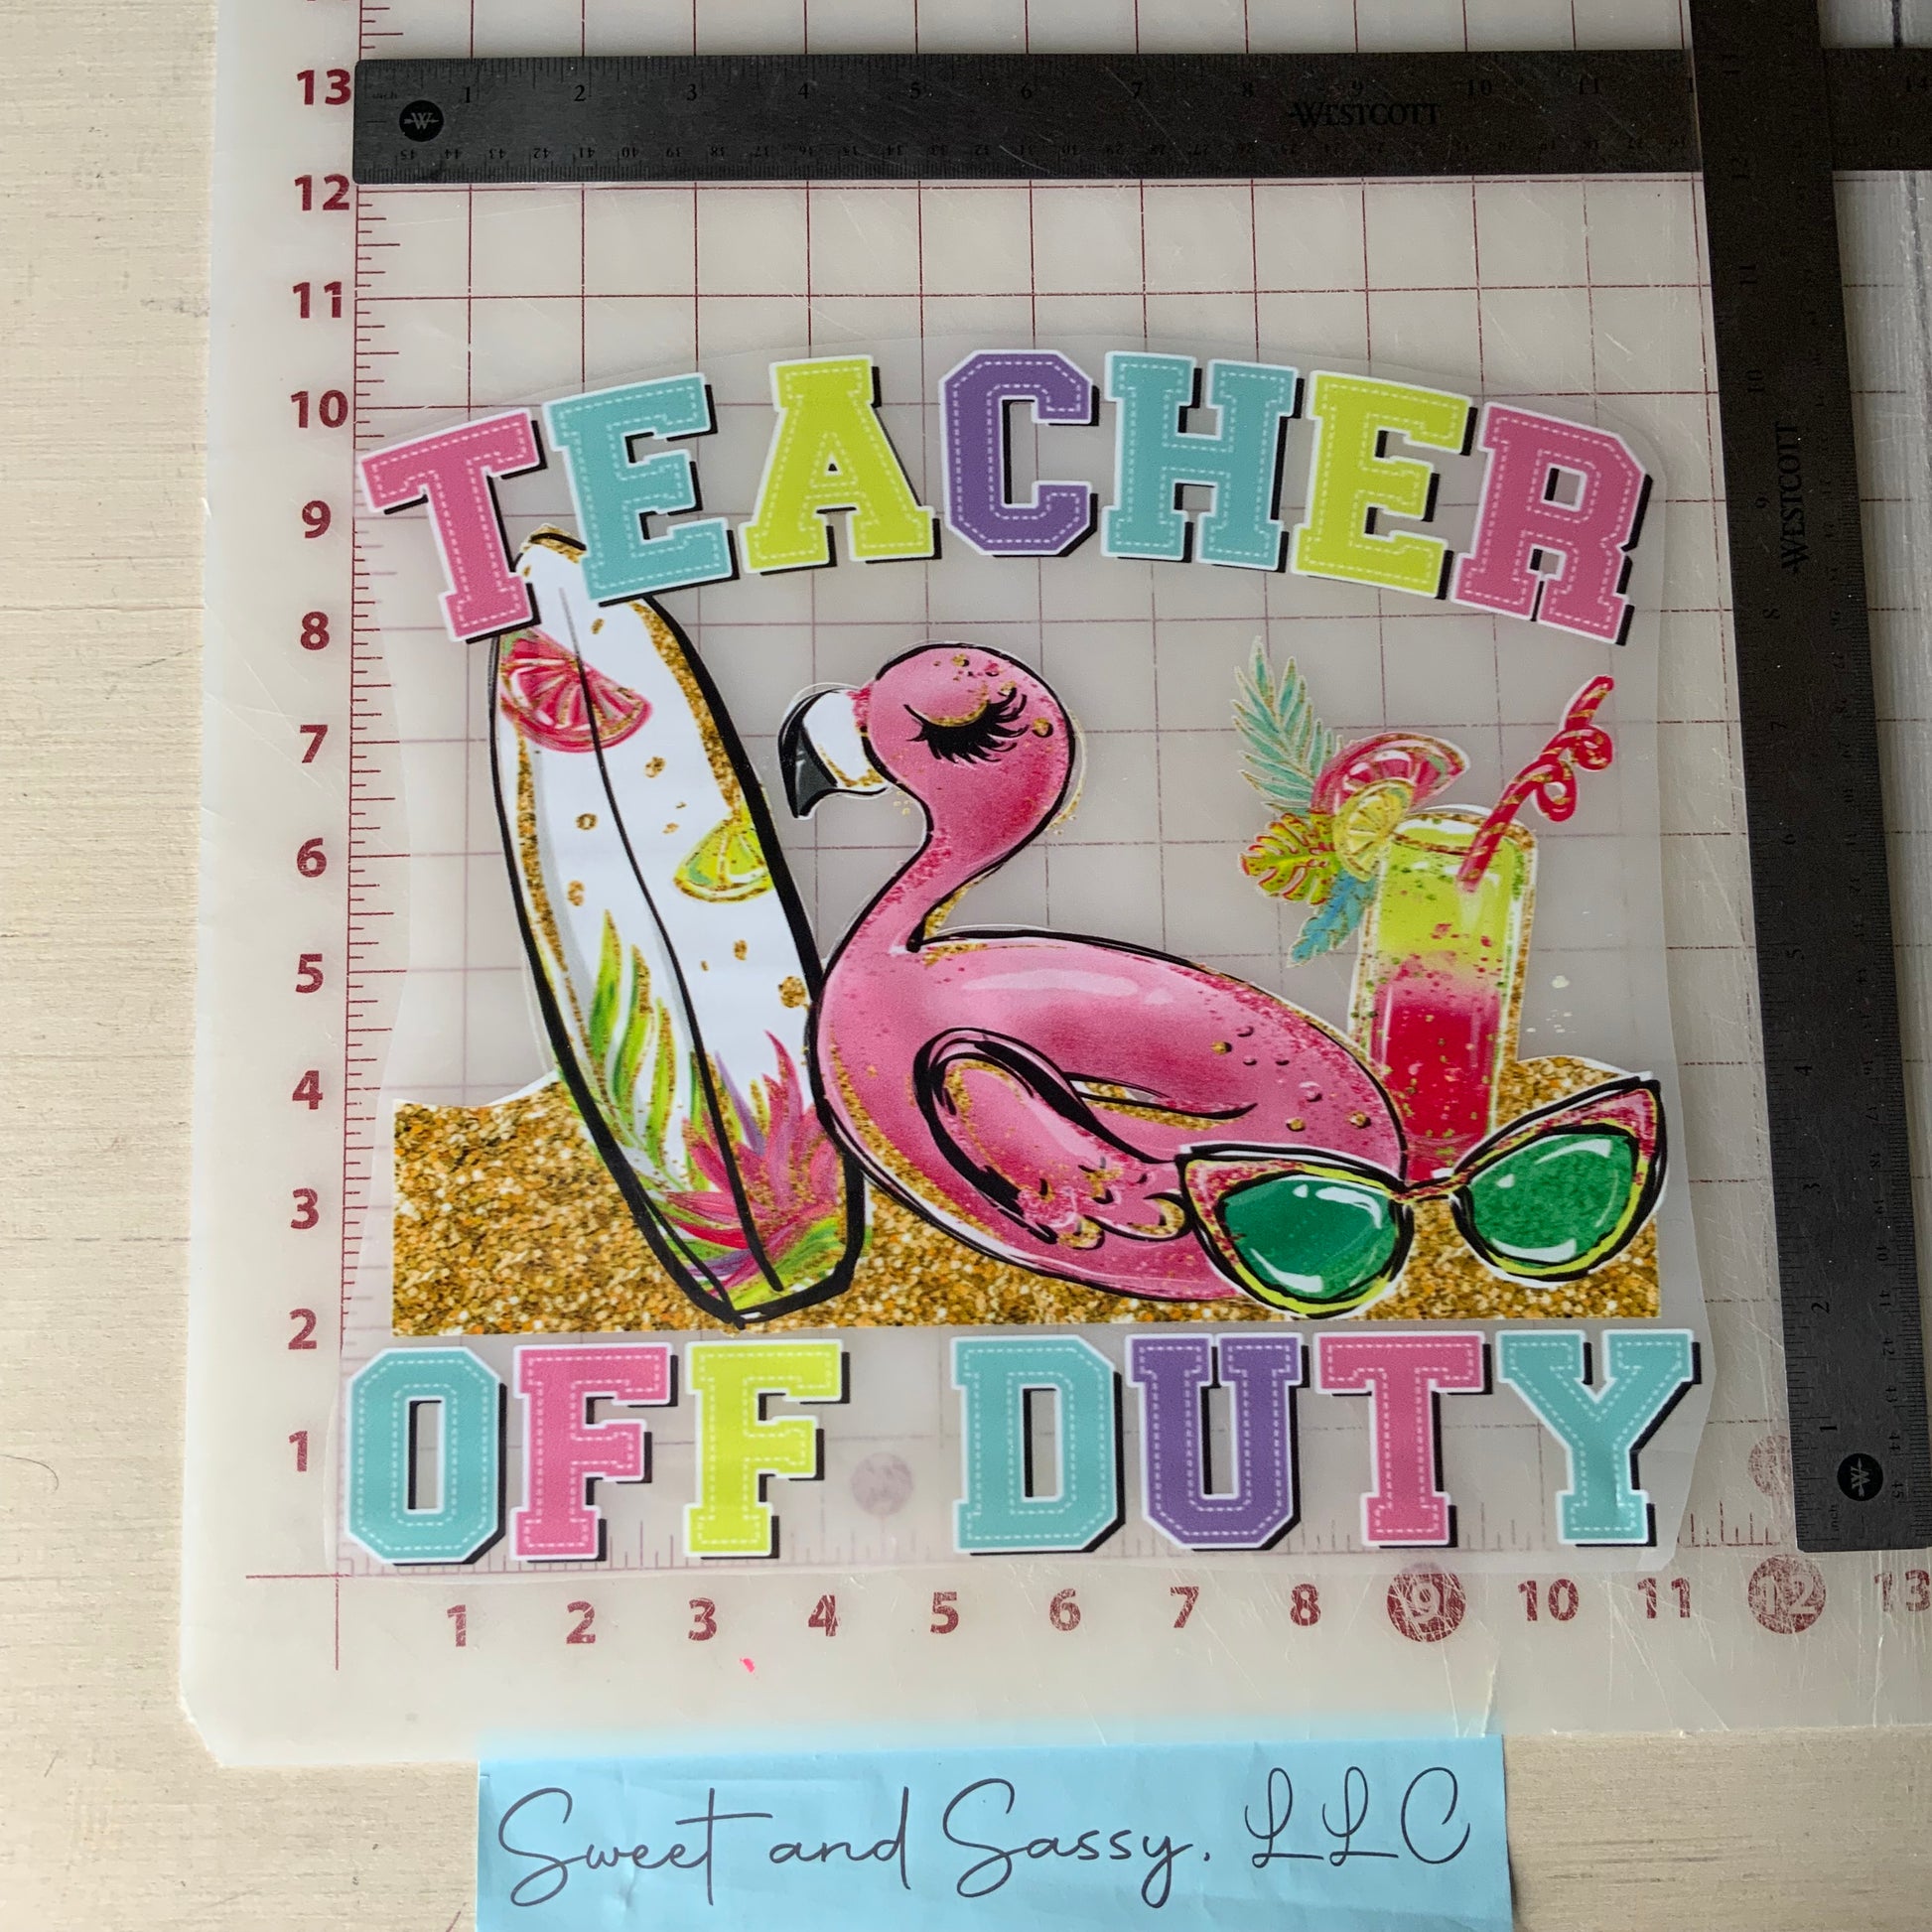 13
1 2 3 4 5 6 7 8 9 10 11
WESTCOTT
12
11
10
TEACHER
9
WESTCOTT
8
7
6
5
4
3
2
OFF DUTY
1
1 2 3 4 5 6 7 8 9 10 11 12 13
Sweet and Sassy, LLC